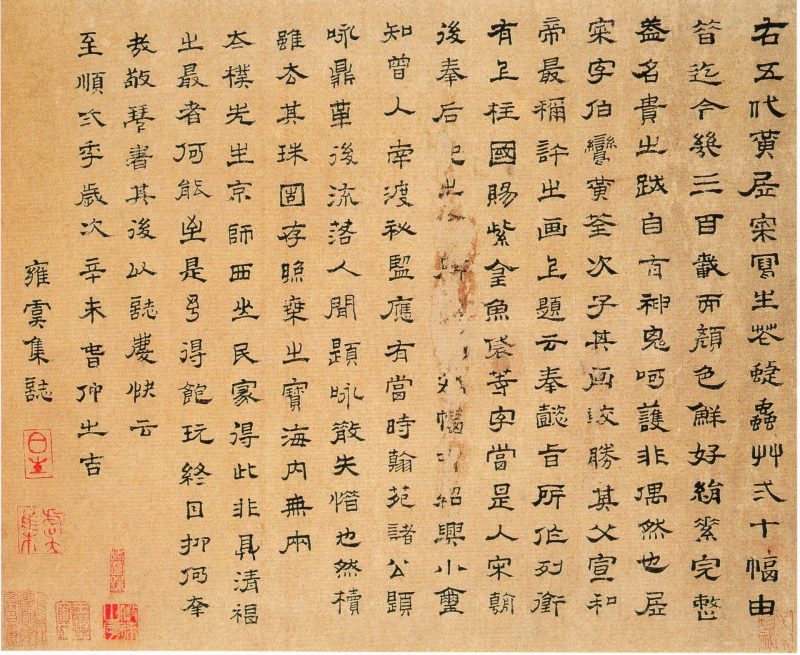 右五代黃居寀寫生花蜨蟲艸弍十幅由
昝迄今幾三百載而顏色鮮好絹素完整
蓋名貴之跋自有神鬼呵護非偶然也居
寀字伯鸞黃筌次子其画勝其父宣和
帝最稱許之画上題云奉懿旨所作列銜
有上柱國賜紫金魚袋等字當是入宋朝
後奉后之幅紹興小璽
知曾入南渡祕監應有當時翰苑諸公題
咏鼎革後流落人間題咏散失惜也然櫝
雖去其珠固存照乘之寶海内無兩
太樸先生京師西坐民家得此非具清福
之最者何能是得飽玩終日抑何幸
敬琴書其後以誌慶快云
至順弍年歲次辛未春仲之吉
雍虞集誌